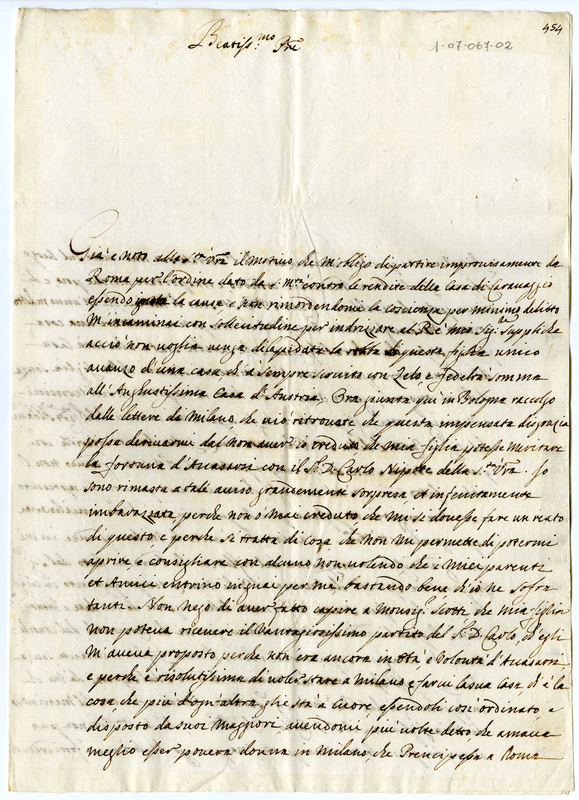 454
1-07-067-02
Beatiss.mo Pre
Già è noto alla S.tà Vra il motivo, che m'obligò di partire improvisamente da
Roma per l'ordine dato da S. M.tà contro le rendite della Casa di Caravaggio
essendo questa la causa e non rimordendomi la coscienza per minimo delitto
M'incaminai con sollecitudine per indrizzare al Rè mio Sig.r suppliche
acciò non voglia venga dilapidata la robba di questa figlia unico
avanzo d'una casa ch'à sempre servito con Zelo e fedeltà somma
all'Augustissima Casa d'Austria. Ora giunta quì in Bologna raccolgo
dalle lettere di Milano che vi è ritrovate che questa impensata disgrazia
possa derivarmi dal non aver io creduto che mia figlia potesse meritare
la fortuna d'Accasarsi con il S.r D. Carlo Nipote della S.tà Vra. Io
sono rimasta a tale aviso grandemente sorpresa et infinitamente
imbarazzata perche non ò mai creduto che mi si dovesse fare un reato
di questo e perche si tratta di cosa che non mi permette di potermi
aprire e consigliare con alcuno non volendo che i miei parenti
et Amici entrino in guai per mè bastando bene ch'io ne Sofra
tanti. Non nego di aver fatto capire a Monsig.r Scotti che mia figlia
non poteva ricevere il Vantagiosissimo partito del S.r D. Carlo, ch'egli
m'aveva proposto perche non era ancora in età e volontà d'Accasarsi
e perche è risolutissima di voler stare a Milano e farvi la sua Casa ch'è la
cosa che più d'ogn'altra gli stà a cuore essendoli così ordinato e
disposto da suoi Maggiori, avendomi più volte detto che amava
meglio esser povera donna in Milano, che Prencipessa a Roma